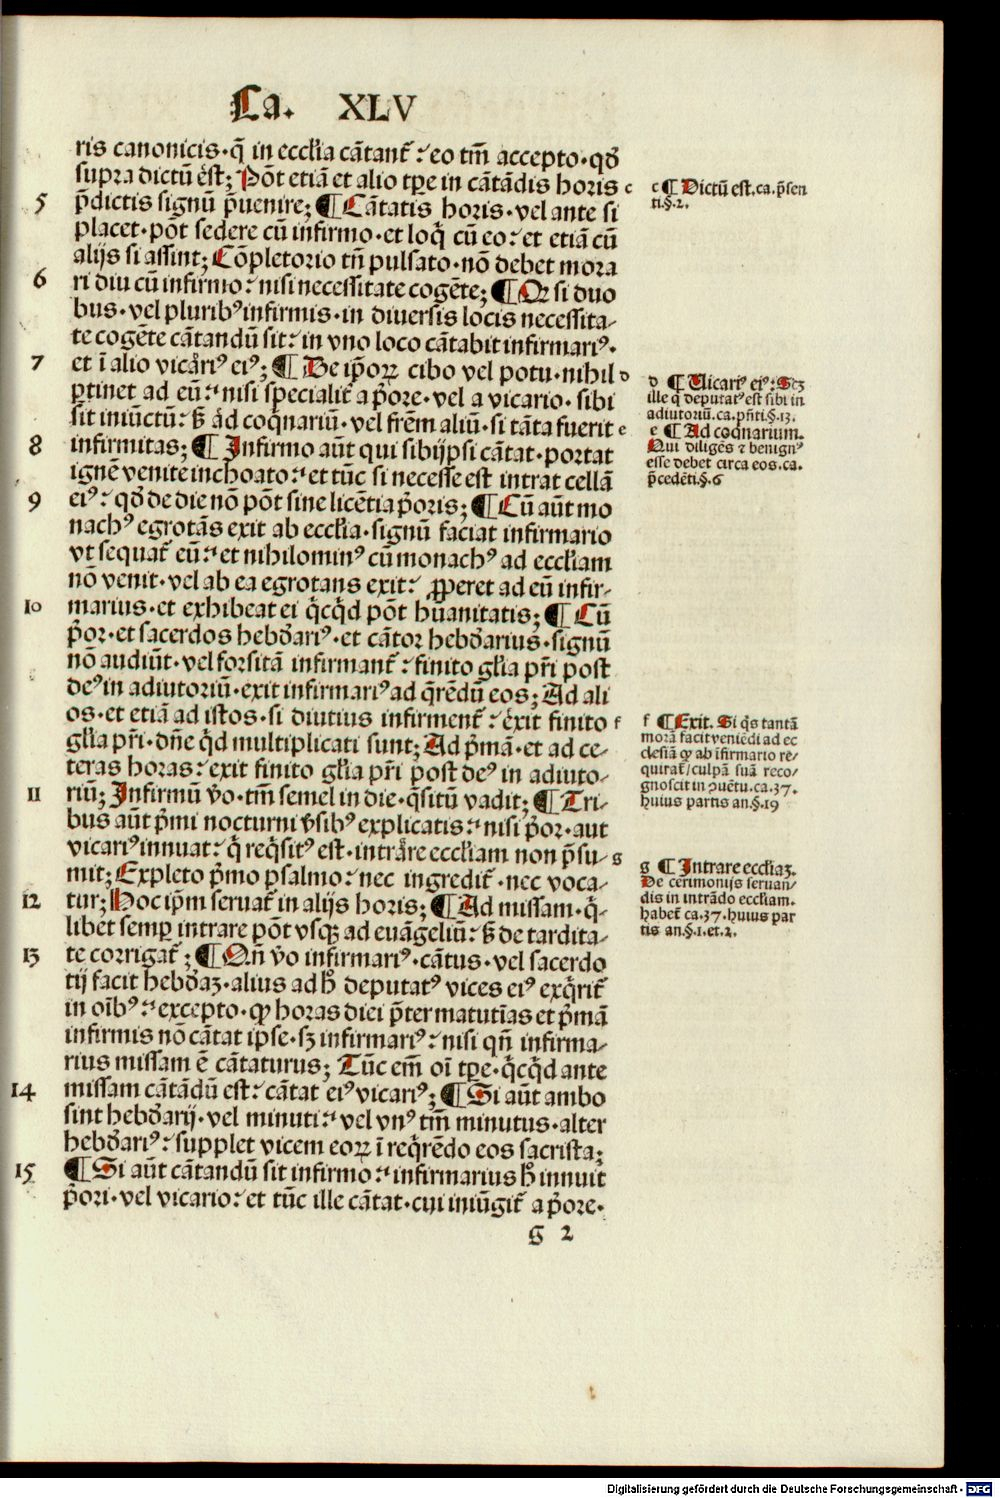 Ca. XLV
ris canonicis·q̄ in eccl̄ia cãtant᷑ : eo tm̄ accepto·qđ
supra dictū est; Põt etiã et alio tꝑe in cãtãdis horis c
5 p̄dictis signū p̄uenire; ¶ Cãtatis horis·vel ante si
placet·põt sedere cū infirmo·et loq̇ cū eo : et etiã cū
alijs si assint; Cõpletorio tñ pulsato·nõ debet mora
6 ri diu cū infirmo : nisi necessitate cogẽte; ¶ Qꝫ si duo
bus·vel pluribꝰ infirmis·in diuersis locis necessita/
te cogẽte cãtandū sit : in vno loco cãtabit infirmariꝰ·
7 et ī alio vicariꝰ eiꝰ; ¶ De ip̄oꝝ cibo vel potu·nihil d
ꝑtinet ad eū : nisi specialit᷑ a p̄ore·vel a vicario·sibi
sit iniūctū : sꝫ ad coq̇nariū·vel fr̄em aliū·si tãta fuerit e
8 infirmitas; ¶ Infirmo aūt qui sibijpsi cãtat·portat
ignẽ venite inchoato : et tūc si necesse est intrat cellã
9 eiꝰ : qđ de die nõ põt sine licẽtia p̄oris; ¶ Cū aūt mo
nachꝰ egrotãs exit ab eccl̄ia·signū faciat infirmario
vt sequat᷑ eū : et nihilominꝰ cū monachꝰ ad eccl̄iam
nõ venit·vel ab ea egrotans exit : ꝓperet ad eū infir-
10 marius·et exhibeat ei q̇cq̇d põt hūanitatis; ¶ Cū
p̄or·et sacerdos hebđariꝰ·et cãtor hebđarius·signū
nõ audiūt·vel forsitã infirmant᷑ : finito gl̄ia pr̄i post
deꝰ in adiutoriū·exit infirmariꝰ ad q̄rẽdū eos; Ad ali
os·et etiã ad istos·si diutius infirment᷑ : exit finito f
gl̄ia pr̄i·dñe q̇d multiplicati sunt; Ad p̄mã·et ad ce-
teras horas : exit finito gl̄ia pr̄i post deꝰ in adiuto-
11 riū; Infirmū v̊o·tm̄ semel in die·q̄sitū vadit; ¶ Tri-
bus aūt p̄mi nocturni v̄sibꝰ explicatis : nisi p̄or·aut
vicariꝰ innuat : q̇ req̇sitꝰ est·intrare eccl̄iam non p̄su- g
mit; Expleto p̄mo psalmo : nec ingredit᷑·nec voca-
12 tur; Hoc ip̄m seruat᷑ in alijs horis; ¶ Ad missam·q̇-
libet semꝑ intrare põt vsqꝫ ad euãgeliū : sꝫ de tardita-
13 te corrigat᷑; ¶ Qñ v̊o infirmariꝰ·cãtus·vel sacerdo
tij facit hebđaꝫ·alius ad hͦ deputatꝰ vices eiꝰ exq̇rit᷑
in oībꝰ : excepto·ꝙ horas diei p̄ter matutīas et p̄mã
infirmis nõ cãtat ipse·sꝫ infirmariꝰ : nisi qñ infirma-
rius missam ē cãtaturus; Tūc em̄ oī tꝑe·q̇cq̇d ante
14 missam cãtãdū est : cãtat eiꝰ vicariꝰ; ¶ Si aūt ambo
sint hebđarij·vel minuti : vel vnꝰ tm̄ minutus·alter
hebđariꝰ : supplet vicem eoꝝ ī req̇rẽdo eos sacrista;
15 ¶ Si aūt cãtandū sit infirmo : infirmarius hͦ innuit
p̄ori·vel vicario : et tūc ille cãtat·cui iniūgit᷑ a p̄ore·
g 2
c ¶ Dictū est.ca.p̄sen
ti.§.2.
d ¶ Uicariꝰ eiꝰ : Scꝫ
ille q̇ deputatꝰ est sibi in
adiutoriū.ca.p̄ñti.§.13.
e ¶ Ad coq̇narium.
Qui diligẽs ⁊ benignꝰ
esse debet circa eos.ca.
p̄cedẽti.§.6
f ¶ Exit. Si q̇s tantã
morã facit veniẽdi ad ec
clesiã ꝙ ab īfirmario re/
quirat᷑/culpã suã reco/
gnoscit in ꝯuẽtu.ca.37.
huius partis an.§.19
g ¶ Intrare eccl̄iaꝫ.
De cerimonijs seruan/
dis in intrãdo eccl̄iam.
habet᷑ ca.37.huius par
tis an.§.1.et.2.
Digitalisierung gefördert durch die Deutsche Forschungsgemeinschaft - DFG